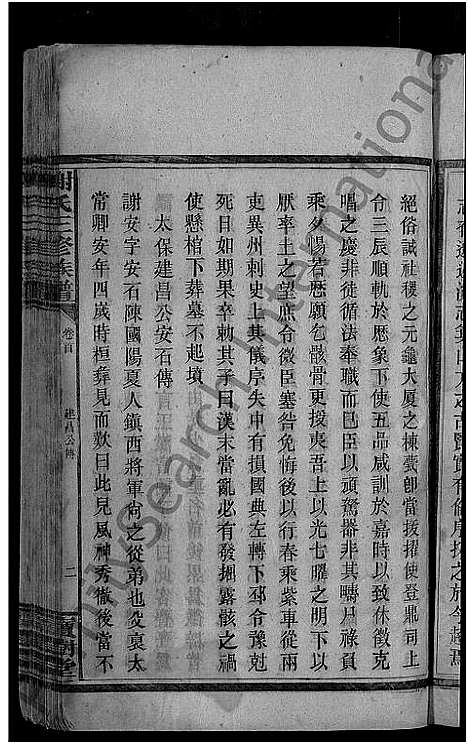 絕俗誠社稷之元龜大厦之棟甍卽當拔擢使登鼎司上
令三辰順軌於歷象下使五品咸訓於嘉時以致休徵克
唱之慶非徒循法奉職而已臣以頑駑器非其疇尸祿負
乘夕惕若厲願乞骸骨更授夷吾上以光七曜之明下以
厭率土之望庶令微臣塞咎免悔後以行春乘紫車從兩
吏冀州刺史上其儀序失中有損國典左轉下邳令豫剋
死日如期果卒勅其子曰漢末當亂必有發掘露骸之禍
使懸棺下葬墓不起墳
太保建昌公安石傳
謝安字安石陳國陽夏人鎮西將軍尚之從弟也父裒太
常卿安年四歲時桓彝見而歎曰此兒風神秀徹後當不
謝氏三修族譜
卷首
建昌公傳
二
寶樹堂
MySearch International